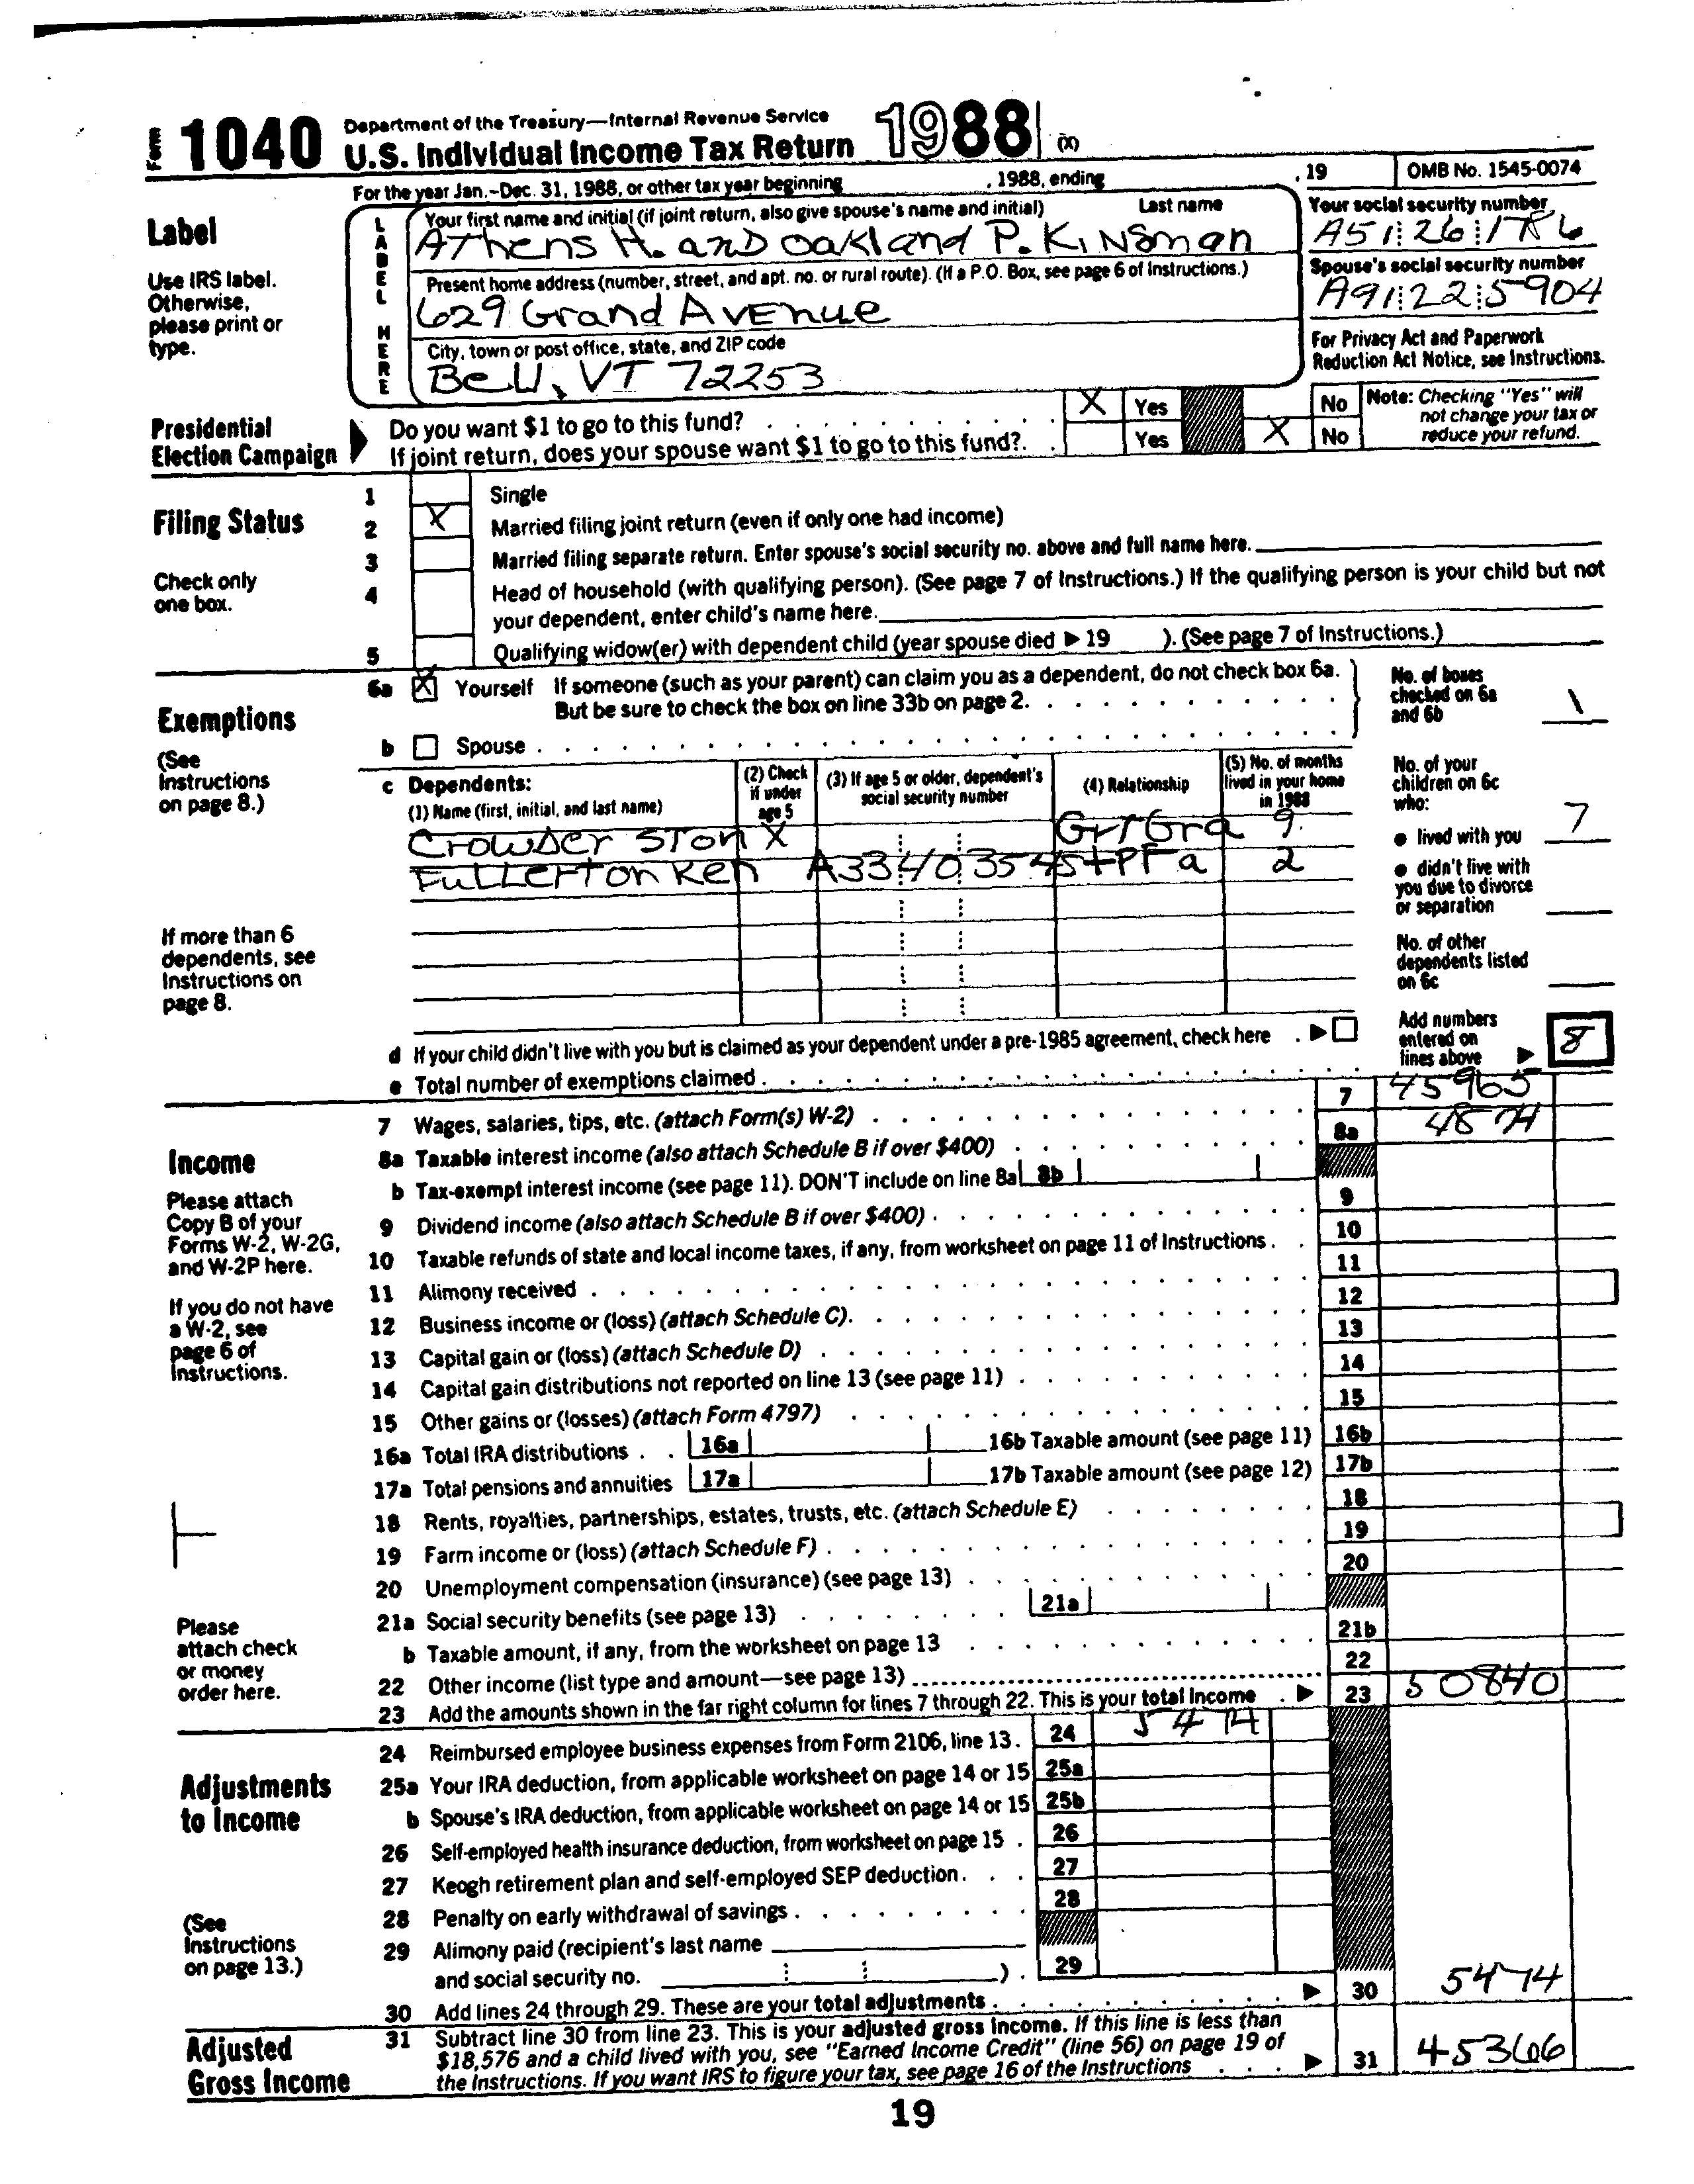 Form 1040 Department of the Treasury—Internal Revenue Service
U.S. Individual Income Tax Return 1988 (X)
For the year Jan.–Dec. 31, 1988, or other tax year beginning , 1988, ending , 19 OMB No. 1545-0074
Label
Use IRS label. Otherwise, please print or type.
LABEL HERE
Your first name and initial (if joint return, also give spouse's name and initial) Last name
Athens H. and Oakland P. Kinsman
Your social security number
A51 26 1786
Present home address (number, street, and apt. no. or rural route). (If a P.O. Box, see page 6 of Instructions.)
629 Grand Avenue
Spouse's social security number
A91 22 5904
City, town or post office, state, and ZIP code
Bell, VT 72253
For Privacy Act and Paperwork Reduction Act Notice, see Instructions.
Presidential Election Campaign
Do you want $1 to go to this fund? X Yes No
If joint return, does your spouse want $1 to go to this fund? Yes X No
Note: Checking "Yes" will not change your tax or reduce your refund.
Filing Status
Check only one box.
1 Single
2 X Married filing joint return (even if only one had income)
3 Married filing separate return. Enter spouse's social security no. above and full name here.
4 Head of household (with qualifying person). (See page 7 of Instructions.) If the qualifying person is your child but not
your dependent, enter child's name here.
5 Qualifying widow(er) with dependent child (year spouse died ▶ 19 ). (See page 7 of Instructions.)
Exemptions
(See Instructions on page 8.)
6a X Yourself If someone (such as your parent) can claim you as a dependent, do not check box 6a.
But be sure to check the box on line 33b on page 2.
b Spouse
No. of boxes checked on 6a and 6b 1
c Dependents:
(1) Name (first, initial, and last name)
(2) Check if under age 5
(3) If age 5 or older, dependent's social security number
(4) Relationship
(5) No. of months lived in your home in 1988
Crowder Ston X GrtGra 9
Fullerton Ken A33 40 3545 StPFa 2
No. of your children on 6c who:
● lived with you 7
● didn't live with you due to divorce or separation
No. of other dependents listed on 6c
If more than 6 dependents, see Instructions on page 8.
d If your child didn't live with you but is claimed as your dependent under a pre-1985 agreement, check here ▶
e Total number of exemptions claimed
Add numbers entered on lines above ▶ 8
Income
Please attach Copy B of your Forms W-2, W-2G, and W-2P here.
If you do not have a W-2, see page 6 of Instructions.
Please attach check or money order here.
7 Wages, salaries, tips, etc. (attach Form(s) W-2) 7 45965
8a Taxable interest income (also attach Schedule B if over $400) 8a 4874
b Tax-exempt interest income (see page 11). DON'T include on line 8a 8b
9 Dividend income (also attach Schedule B if over $400) 9
10 Taxable refunds of state and local income taxes, if any, from worksheet on page 11 of Instructions 10
11 Alimony received 11
12 Business income or (loss) (attach Schedule C) 12
13 Capital gain or (loss) (attach Schedule D) 13
14 Capital gain distributions not reported on line 13 (see page 11) 14
15 Other gains or (losses) (attach Form 4797) 15
16a Total IRA distributions 16a 16b Taxable amount (see page 11) 16b
17a Total pensions and annuities 17a 17b Taxable amount (see page 12) 17b
18 Rents, royalties, partnerships, estates, trusts, etc. (attach Schedule E) 18
19 Farm income or (loss) (attach Schedule F) 19
20 Unemployment compensation (insurance) (see page 13) 20
21a Social security benefits (see page 13) 21a
b Taxable amount, if any, from the worksheet on page 13 21b
22 Other income (list type and amount—see page 13) 22
23 Add the amounts shown in the far right column for lines 7 through 22. This is your total income ▶ 23 50840
Adjustments to Income
(See Instructions on page 13.)
24 Reimbursed employee business expenses from Form 2106, line 13. 24 5474
25a Your IRA deduction, from applicable worksheet on page 14 or 15 25a
b Spouse's IRA deduction, from applicable worksheet on page 14 or 15 25b
26 Self-employed health insurance deduction, from worksheet on page 15 26
27 Keogh retirement plan and self-employed SEP deduction 27
28 Penalty on early withdrawal of savings 28
29 Alimony paid (recipient's last name
and social security no. ) 29
30 Add lines 24 through 29. These are your total adjustments ▶ 30 5474
Adjusted Gross Income
31 Subtract line 30 from line 23. This is your adjusted gross income. If this line is less than
$18,576 and a child lived with you, see "Earned Income Credit" (line 56) on page 19 of
the Instructions. If you want IRS to figure your tax, see page 16 of the Instructions ▶ 31 45366
19